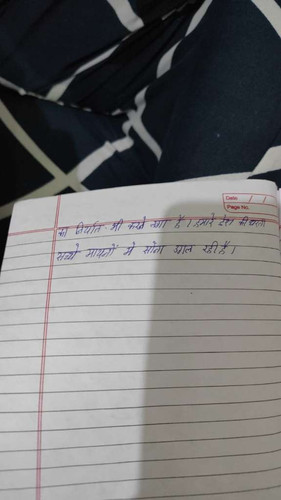 Date / /
Page No.
का निर्यात भी करने लगा है। हमारे देश की धरती
सच्चे मायनों में सोना उगल रही है।